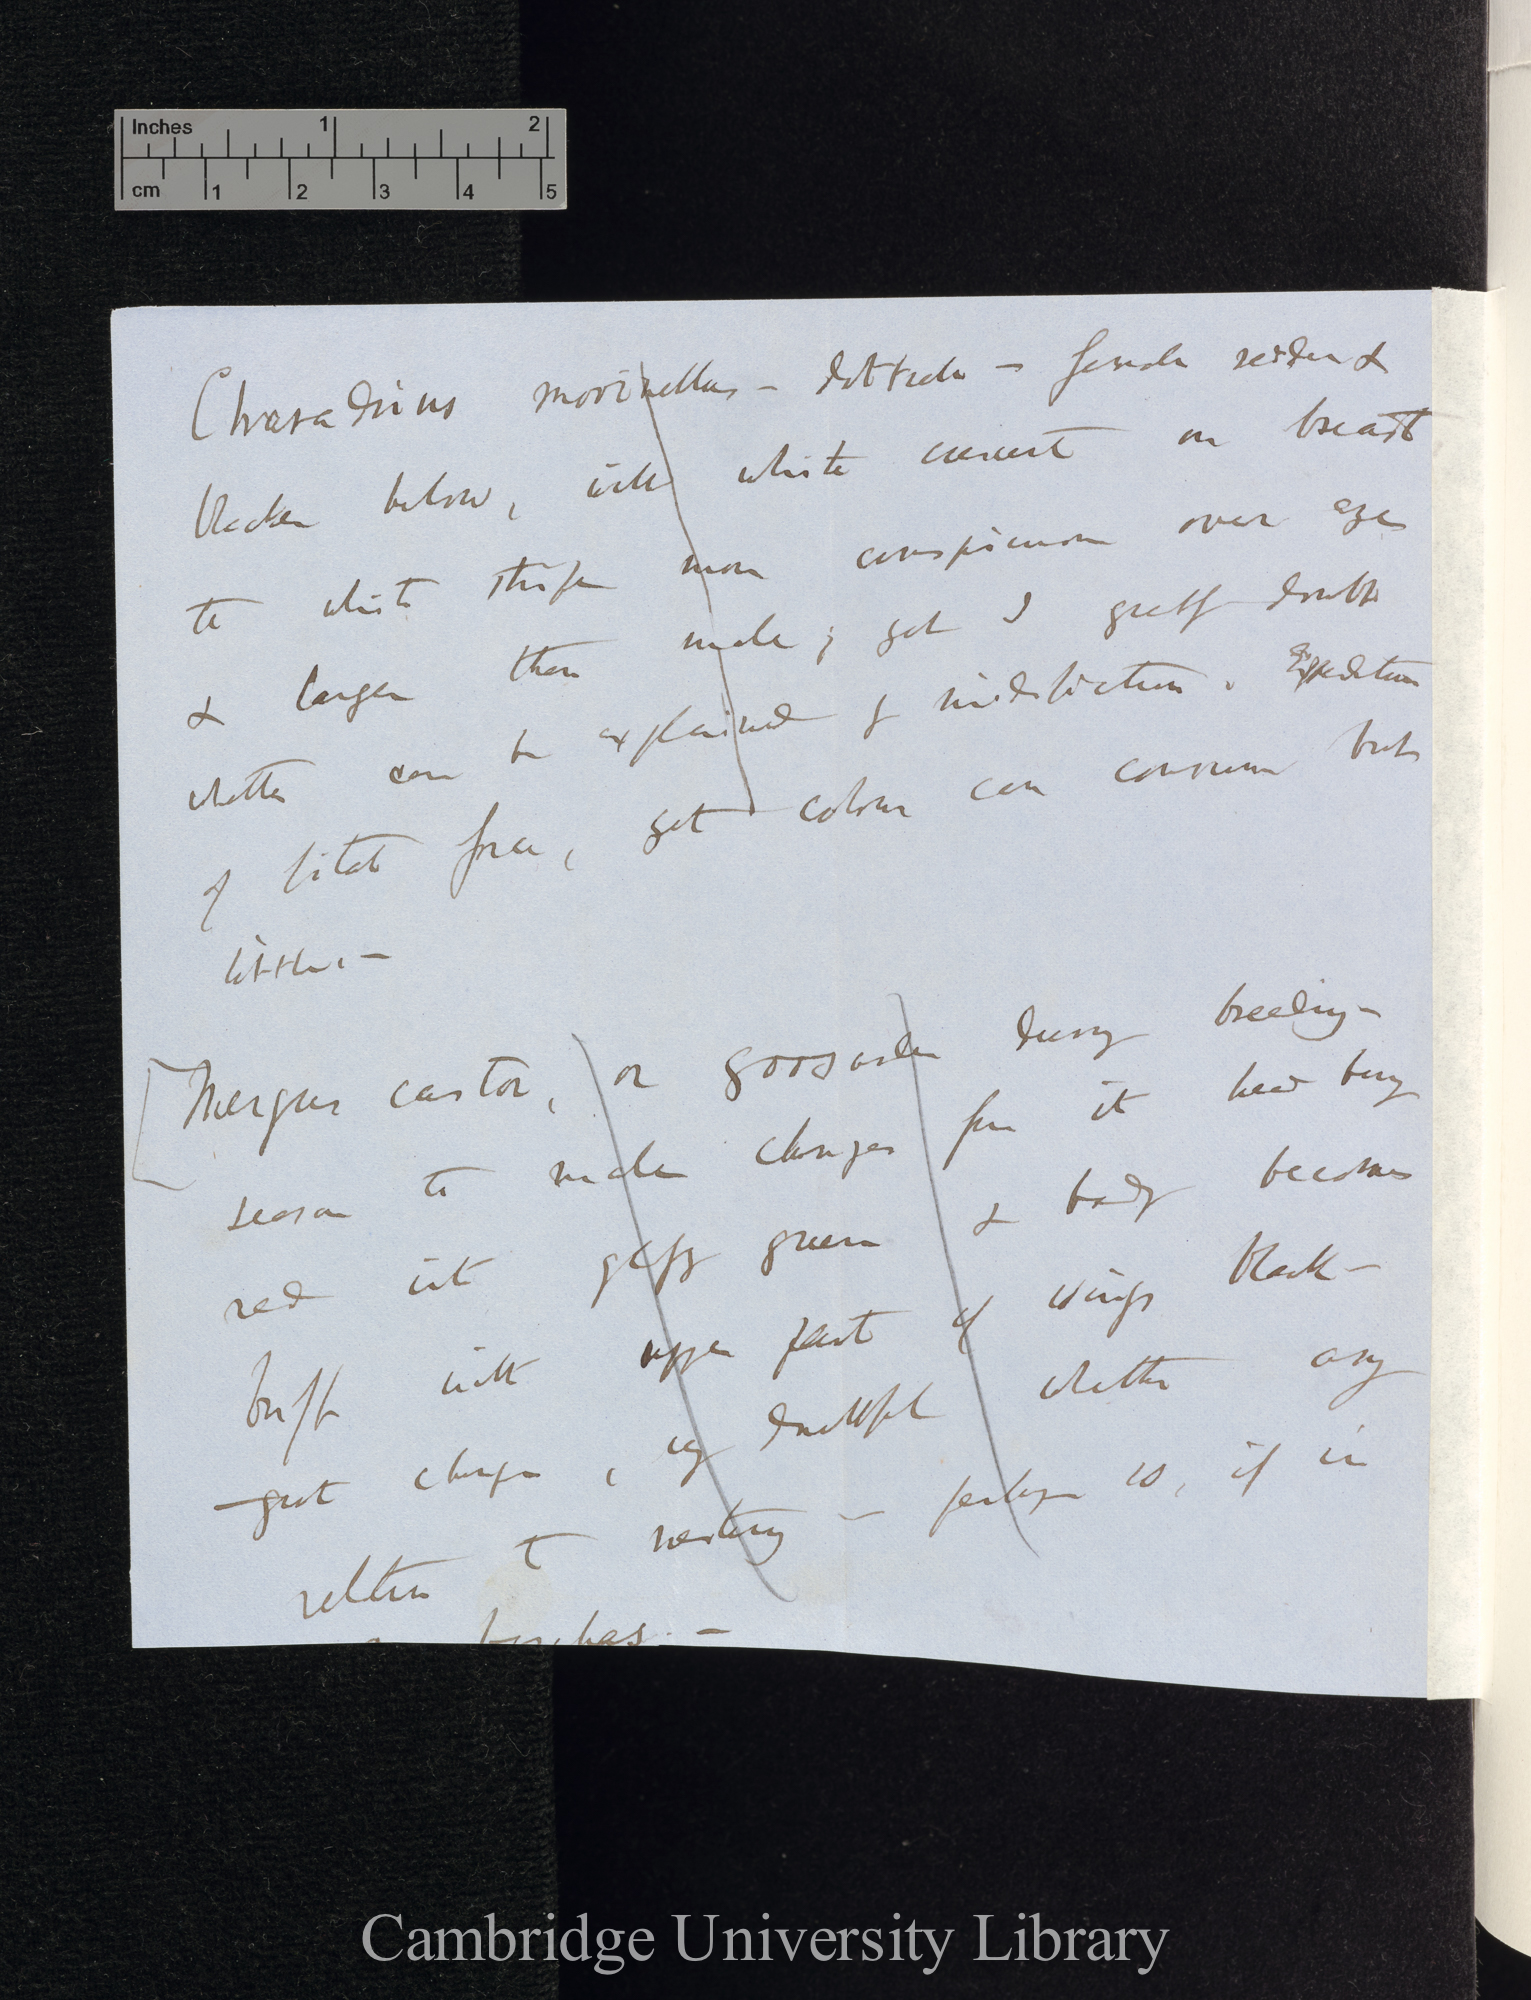 Inches 1 2
cm 1 2 3 4 5
Charadrius morinellus – dottrele – female redder &
blacker below, with white crescent on breast
the white stripe more conspicuous over eyes
& larger than male; yet I greatly doubt
whether can be explained by nidification. Expenditure
of vital force, yet colour can consume but
little. –
Mergus castor, or goosander during breeding –
season the male changes from its head being
red into glossy green & body becomes
buff with upper part of wings black –
great change, very doubtful whether any
relation to nesting – perhaps so, if in
bushes. –
Cambridge University Library